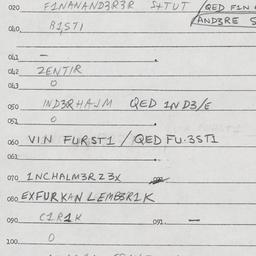 020 F1NANAND3R3R S+TUT /QED F1N
(AND3RE S
040 B1,ST1
041 —
042 ZENTIR
043 0
050 IND3RHAJM QED 1N D3/E
051 0
060 VIN FURST1 / QED FU.3ST1
061
070 1NCHALM3RZ3X
080 EXFURKAN LEMB3R1K
090 C1R1K 091. —
100 0